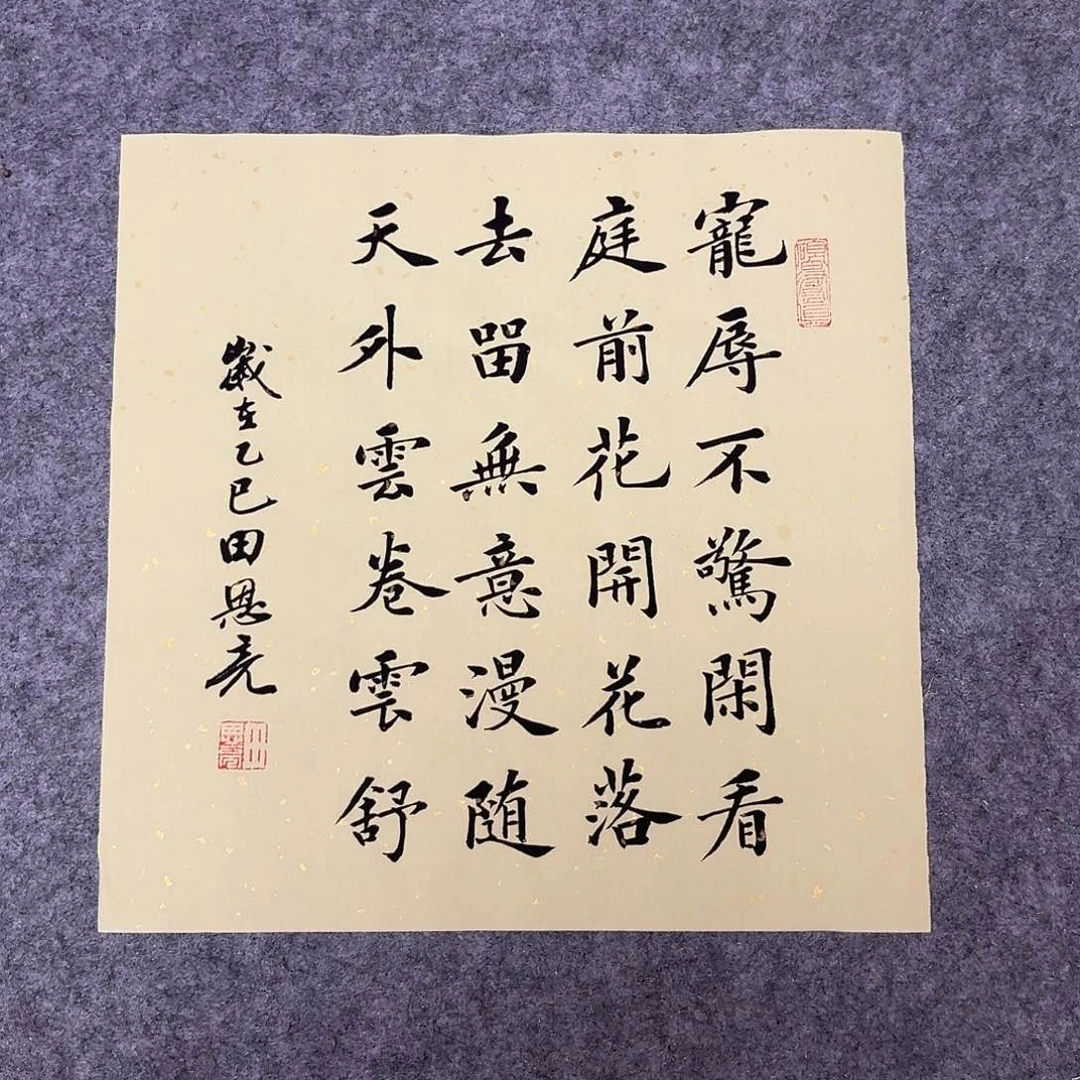 寵辱不驚閑看
庭前花開花落
去留無意漫随
天外雲卷雲舒
歲在乙巳田恩亮